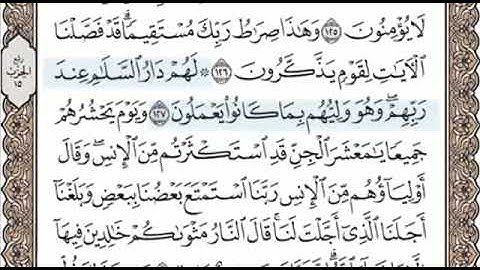 لَا يُؤْمِنُونَ ١٢٥ وَهَٰذَا صِرَٰطُ رَبِّكَ مُسْتَقِيمًاۗ قَدْ فَصَّلْنَا
ٱلْءَايَٰتِ لِقَوْمٍ يَذَّكَّرُونَ ١٢٦ ۞ لَهُمْ دَارُ ٱلسَّلَٰمِ عِندَ
رَبِّهِمْۖ وَهُوَ وَلِيُّهُم بِمَا كَانُوا۟ يَعْمَلُونَ ١٢٧ وَيَوْمَ يَحْشُرُهُمْ
جَمِيعًا يَٰمَعْشَرَ ٱلْجِنِّ قَدِ ٱسْتَكْثَرْتُم مِّنَ ٱلْإِنسِۖ وَقَالَ
أَوْلِيَآؤُهُم مِّنَ ٱلْإِنسِ رَبَّنَا ٱسْتَمْتَعَ بَعْضُنَا بِبَعْضٍ وَبَلَغْنَآ
أَجَلَنَا ٱلَّذِىٓ أَجَّلْتَ لَنَاۚ قَالَ ٱلنَّارُ مَثْوَىٰكُمْ خَٰلِدِينَ فِيهَآ
ربع
الحزب
١٥